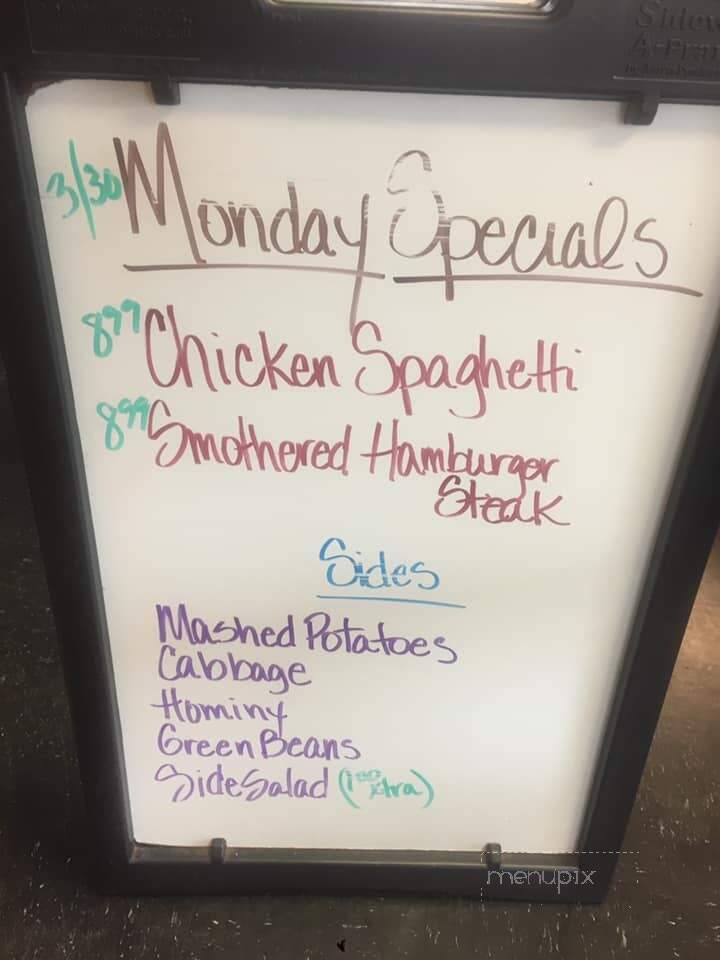 Sidew
A-Fra
3/30 Monday Specials
8.99 Chicken Spaghetti
8.99 Smothered Hamburger
Steak
Sides
Mashed Potatoes
Cabbage
Hominy
Green Beans
Side Salad (1.00 xtra)
menupix